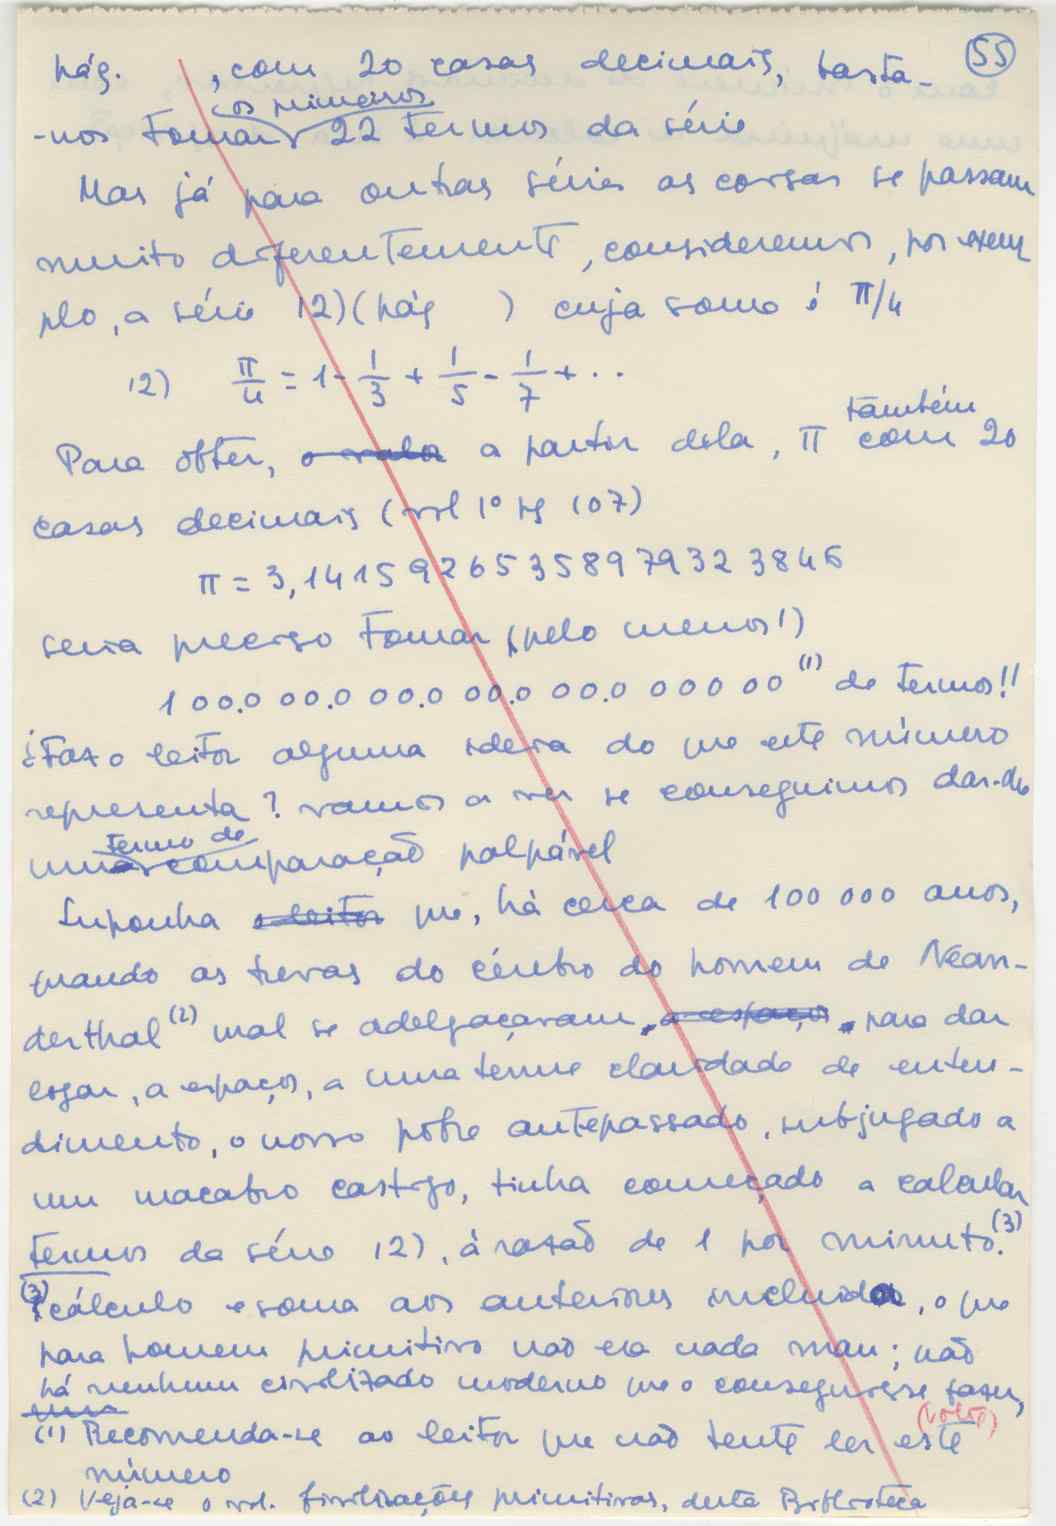 55
pág.      , com 20 casas decimais, basta-
os primeiros
-nos tomar 22 termos da série
Mas já para outras séries as coisas se passam
muito diferentemente, consideremos, por exem
plo, a série 12) (pág      ) cuja soma é π/4
12) π/4 = 1 - 1/3 + 1/5 - 1/7 + ..
também
Para obter, o valor a partir dela, π com 20
casas decimais (vol 1º pg 107)
π = 3,14159265358979323846
seria preciso tomar (pelo menos!)
1 00.0 00.0 00.0 00.0 00.0 000 00 (1) de termos!!
¿Faz o leitor alguma ideia do que este número
representa? vamos a ver se conseguimos dar-lhe
termo de
um comparação palpável
Suponha o leitor que, há cerca de 100 000 anos,
quando as trevas do cérebro do homem de Nean-
derthal (2) mal se adelgaçavam, a espaços, para dar
logar, a espaços, a uma tenue claridade de enten-
dimento, o nosso pobre antepassado, subjugado a
um macabro castigo, tinha começado a calcular
termos da série 12), à razão de 1 por minuto. (3)
(3) cálculo e soma aos anteriores incluida, o que
para homem primitivo não era nada mau; não
há nenhum civilizado moderno que o conseguisse fazer,
(volte)
(1) Recomenda-se ao leitor que não tente ler este
número
(2) Veja-se o vol. Civilizações primitivas, desta Biblioteca